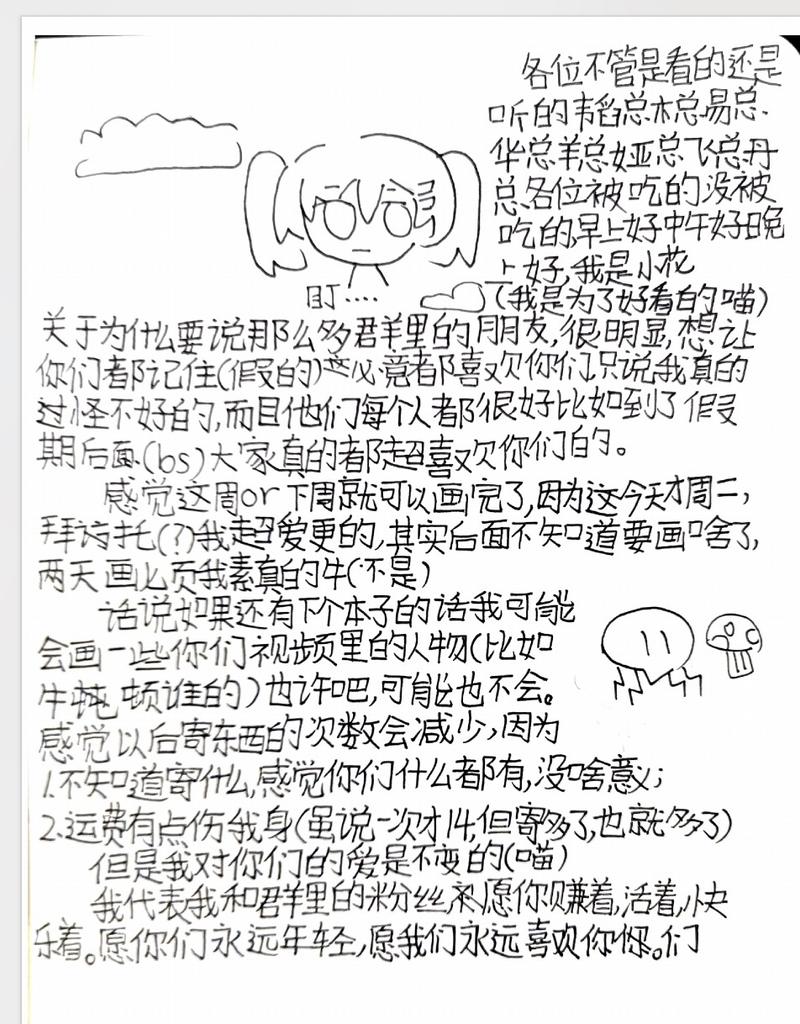 各位不管是看的还是
听的韬总木总易总
华总羊总娅总飞总丹
总各位被吃的没被
吃的,早上好中午好晚
上好,我是小花
盯....
(我是为了好看的喵)
关于为什么要说那么多君羊里的,朋友,很明显,想让
你们都记住(假的)这必竟都喜欢你们只说我真的
过怪不好的,而且他们每个人都很好比如到了假
期后面(bs)大家真的都超喜欢你们的。
感觉这周or下周就可以画完了,因为这今天才周二,
拜访托(?)我超爱更的,其实后面不知道要画啥了,
两天画 页我素真的牛(不是)
话说如果还有下个本子的话我可能
会画一些你们视频里的人物(比如
牛 顿谁的)也许吧,可能也不会。
感觉以后寄东西的次数会减少,因为
1.不知道寄什么,感觉你们什么都有,没啥意义;
2.运费有点伤我身(虽说一次才14,但寄多了,也就多了)
但是我对你们的爱是不变的(喵)
我代表我和君羊里的粉丝,祝愿你赚着,活着,快
乐着。愿你们永远年轻,愿我们永远喜欢你你。们